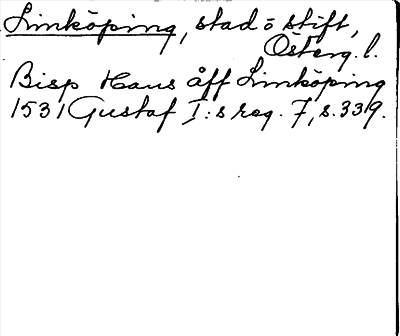 Linköping, stad o stift,
Österg. l.
Bisp Hans åff Linköping
1531 Gustaf I:s reg. 7, s. 339.